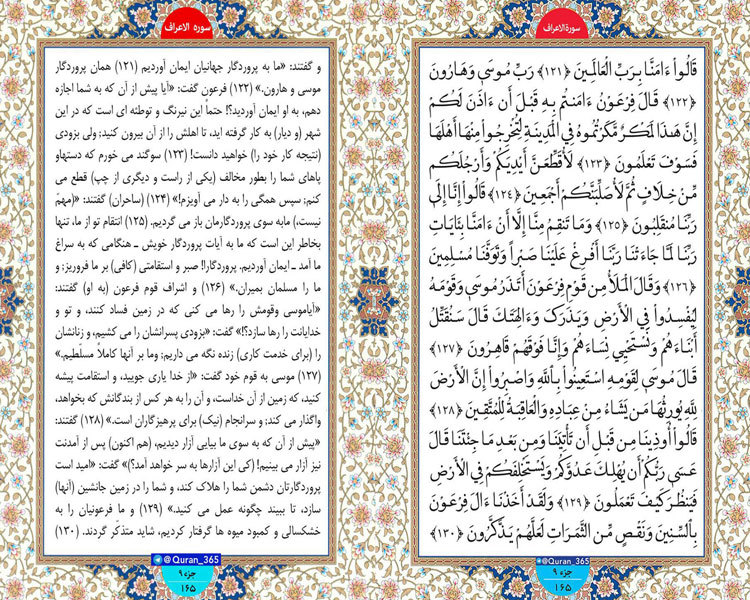 سورة الاعراف
قَالُوٓاْ ءَامَنَّا بِرَبِّ الْعَالَمِينَ ﴿۱۲۱﴾ رَبِّ مُوسَىٰ وَهَارُونَ
﴿۱۲۲﴾ قَالَ فِرْعَوْنُ ءَامَنتُم بِهِ قَبْلَ أَنْ ءَاذَنَ لَكُمْ
إِنَّ هَٰذَا لَمَكْرٌ مَّكَرْتُمُوهُ فِي الْمَدِينَةِ لِتُخْرِجُواْ مِنْهَا أَهْلَهَا
فَسَوْفَ تَعْلَمُونَ ﴿۱۲۳﴾ لَأُقَطِّعَنَّ أَيْدِيَكُمْ وَأَرْجُلَكُم
مِّنْ خِلَافٍ ثُمَّ لَأُصَلِّبَنَّكُمْ أَجْمَعِينَ ﴿۱۲۴﴾ قَالُوٓاْ إِنَّا إِلَىٰ
رَبِّنَا مُنقَلِبُونَ ﴿۱۲۵﴾ وَمَا تَنقِمُ مِنَّا إِلَّا أَنْ ءَامَنَّا بِـَٔايَاتِ
رَبِّنَا لَمَّا جَاءَتْنَا رَبَّنَا أَفْرِغْ عَلَيْنَا صَبْراً وَتَوَفَّنَا مُسْلِمِينَ
﴿۱۲۶﴾ وَقَالَ الْمَلَأُ مِن قَوْمِ فِرْعَوْنَ أَتَذَرُ مُوسَىٰ وَقَوْمَهُ
لِيُفْسِدُواْ فِي الْأَرْضِ وَيَذَرَكَ وَءَالِهَتَكَ قَالَ سَنُقَتِّلُ
أَبْنَاءَهُمْ وَنَسْتَحْيِي نِسَاءَهُمْ وَإِنَّا فَوْقَهُمْ قَاهِرُونَ ﴿۱۲۷﴾
قَالَ مُوسَىٰ لِقَوْمِهِ اسْتَعِينُواْ بِاللَّهِ وَاصْبِرُواْ إِنَّ الْأَرْضَ
لِلَّهِ يُورِثُهَا مَن يَشَاءُ مِنْ عِبَادِهِ وَالْعَاقِبَةُ لِلْمُتَّقِينَ ﴿۱۲۸﴾
قَالُوٓاْ أُوذِينَا مِن قَبْلِ أَن تَأْتِيَنَا وَمِن بَعْدِ مَا جِئْتَنَا قَالَ
عَسَىٰ رَبُّكُمْ أَن يُهْلِكَ عَدُوَّكُمْ وَيَسْتَخْلِفَكُمْ فِي الْأَرْضِ
فَيَنظُرَ كَيْفَ تَعْمَلُونَ ﴿۱۲۹﴾ وَلَقَدْ أَخَذْنَا ءَالَ فِرْعَوْنَ
بِالسِّنِينَ وَنَقْصٍ مِّنَ الثَّمَرَاتِ لَعَلَّهُمْ يَذَّكَّرُونَ ﴿۱۳۰﴾
@Quran_365
جزء ۹
۱۶۵
سوره الاعراف
و گفتند: «ما به پروردگار جهانیان ایمان آوردیم (۱۲۱) همان پروردگار
موسی و هارون.» (۱۲۲) فرعون گفت: «آیا پیش از آن که به شما اجازه
دهم، به او ایمان آوردید؟! حتماً این نیرنگ و توطئه ای است که در این
شهر (و دیار) به کار گرفته اید، تا اهلش را از آن بیرون کنید; ولی بزودی
(نتیجه کار خود را) خواهید دانست! (۱۲۳) سوگند می خورم که دستهاو
پاهای شما را بطور مخالف (یکی از راست و دیگری از چپ) قطع می
کنم; سپس همگی را به دار می آویزم!» (۱۲۴) (ساحران) گفتند: «(مهمّ
نیست،) مابه سوی پروردگارمان باز می گردیم. (۱۲۵) انتقام تو از ما، تنها
بخاطر این است که ما به آیات پروردگار خویش ـ هنگامی که به سراغ
ما آمد ـ ایمان آوردیم. پروردگارا! صبر و استقامتی (کافی) بر ما فروریز; و
ما را مسلمان بمیران.» (۱۲۶) و اشراف قوم فرعون (به او) گفتند:
«آیاموسی وقومش را رها می کنی که در زمین فساد کنند، و تو و
خدایانت را رها سازد؟!» گفت: «بزودی پسرانشان را می کشیم، و زنانشان
را (برای خدمت کاری) زنده نگه می داریم; وما بر آنها کاملاً مسلّطیم.»
(۱۲۷) موسی به قوم خود گفت: «از خدا یاری جویید، و استقامت پیشه
کنید، که زمین از آن خداست، و آن را به هر کس از بندگانش که بخواهد،
واگذار می کند; و سرانجام (نیک) برای پرهیزگاران است.» (۱۲۸) گفتند:
«پیش از آن که به سوی ما بیایی آزار دیدیم، (هم اکنون) پس از آمدنت
نیز آزار می بینیم! (کی این آزارها به سر خواهد آمد؟)» گفت: «امید است
پروردگارتان دشمن شما را هلاک کند، و شما را در زمین جانشین (آنها)
سازد، تا ببیند چگونه عمل می کنید.» (۱۲۹) و ما فرعونیان را به
خشکسالی و کمبود میوه ها گرفتار کردیم، شاید متذکّر گردند. (۱۳۰)
@Quran_365
جزء ۹
۱۶۵